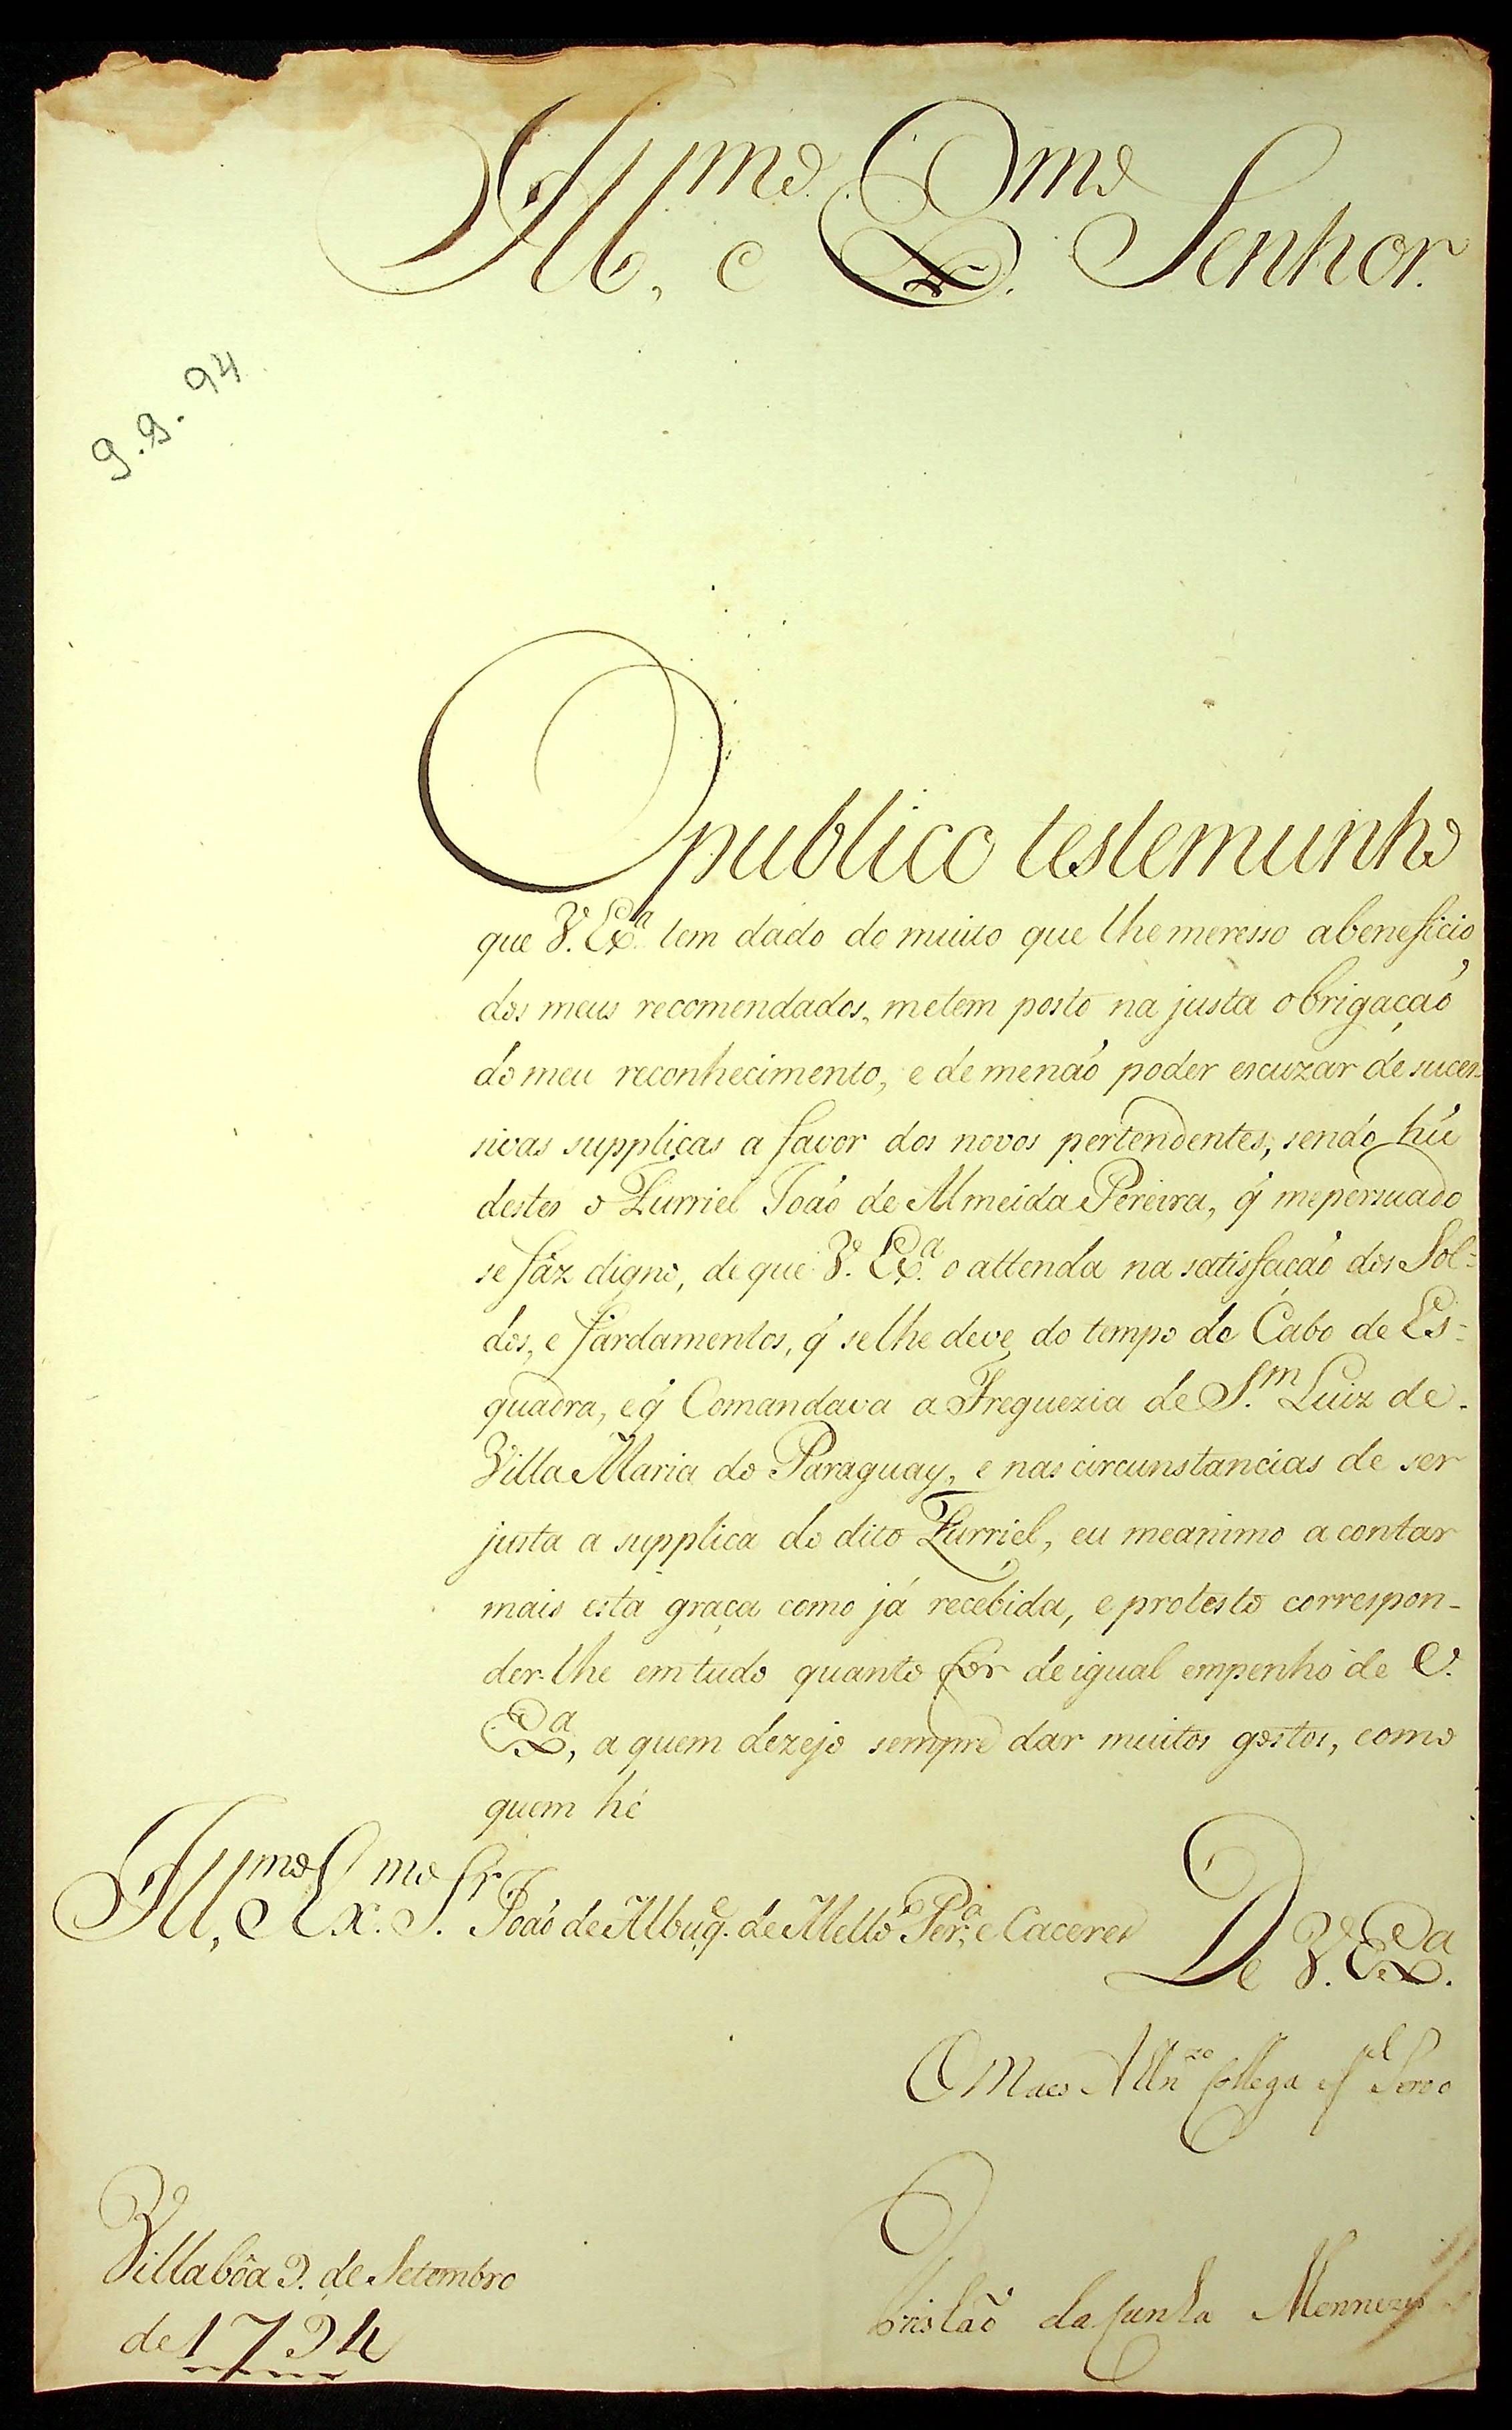 Ill.mo, e Ex.mo Senhor.
9.9.94
O publico testemunho
que V. Ex.a tem dado do muito que lhe meresso a beneficio
dos meus recomendados, metem posto na justa obrigação
do meu reconhecimento, e de menáo poder escuzar de suces-
sivas supplicas a favor dos novos pertendentes, sendo hũ
destes o Furriel João de Almeida Pereira, q̃ mepersuado
se fáz digno, de que V. Ex.a o attenda na satisfação dos Sol-
dos, e fardamentos, q̃ selhe deve do tempo de Cabo de Es-
quadra, e q̃ Comandava a Freguezia de S.m Luiz de
Villa Maria do Paraguay, e nas circunstancias de ser
justa a supplica do dito Furriel, eu meanimo a contar
mais esta graça como já recebida, e protesto correspon-
der-lhe em tudo quanto fôr de igual empenho de V.
Ex.a, a quem dezejo sempre dar muitos gostos, como
quem hé
Ill.mo, e Ex.mo Sr. João de Albuq.e de Mello Per.a e Caceres
De V. Ex.a
O Mais Collega Servo
Villa bôa 9. de Setembro
de 1794
Tristão da Cunha Menezes